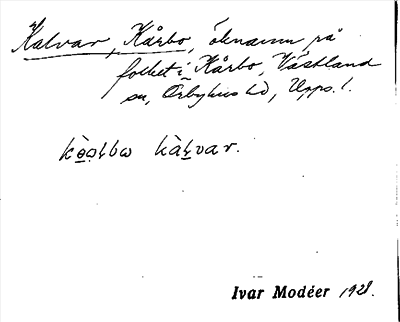 Kalvar, Kårbo, öknamn på
folket i Kårbo, Västland
sn, Örbyhus hd, Upps. l.
kàḷvar.
Ivar Modéer 1928.